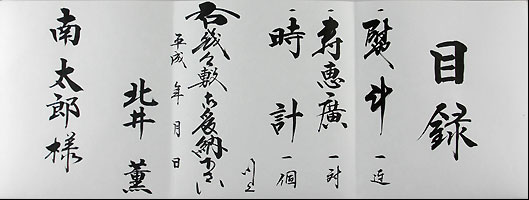 目録
一 熨斗 一連
一 寿恵廣 一対
一 時計 一個
右幾久敷御受納下さい
以上
平成 年 月 日
北井 薫
南太郎様